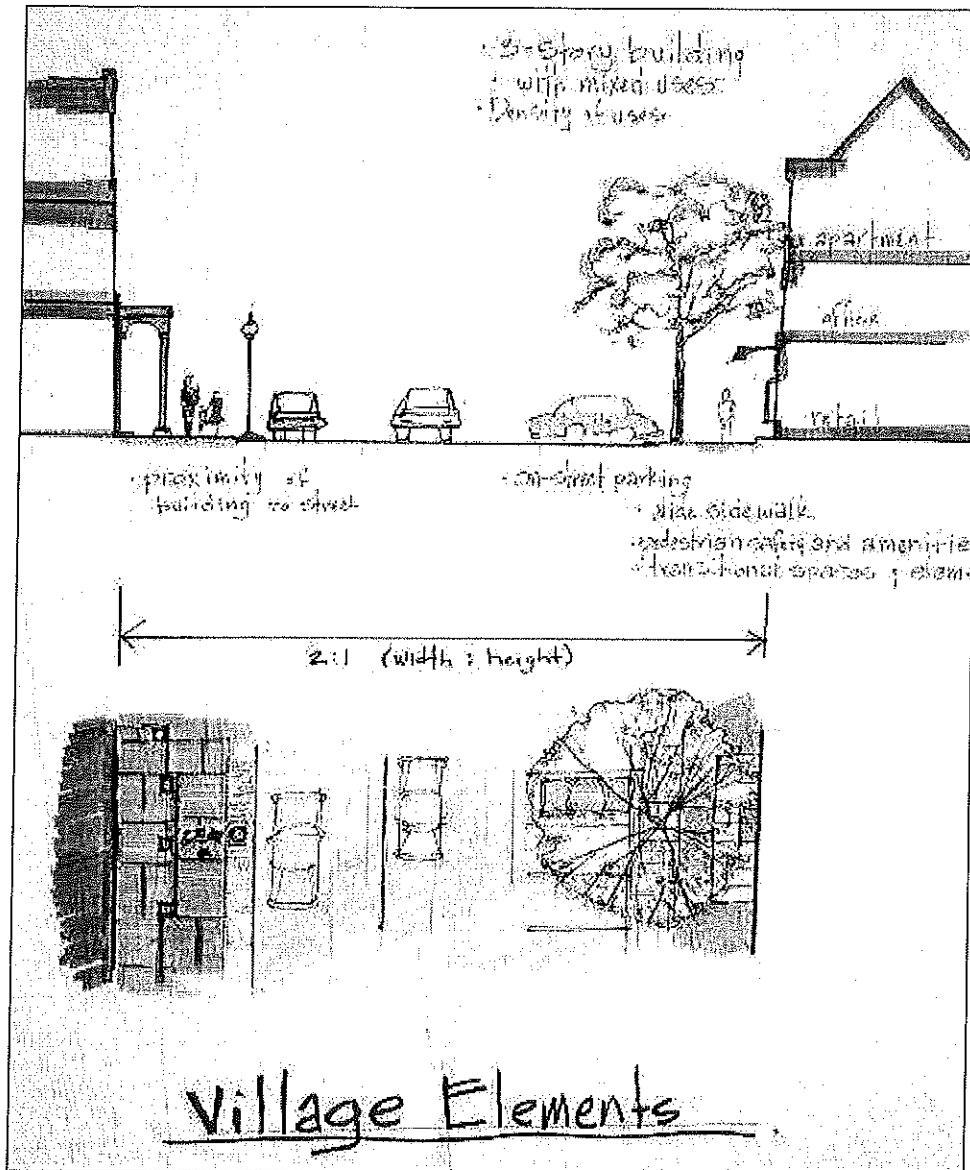 · 3-Story building
with mixed uses
· Density of uses
apartment
office
retail
· proximity of
building to street
· on-street parking
· wide sidewalk
· pedestrian safety and amenitie
· transitional spaces & eleme
2:1 (width : height)
Village Elements